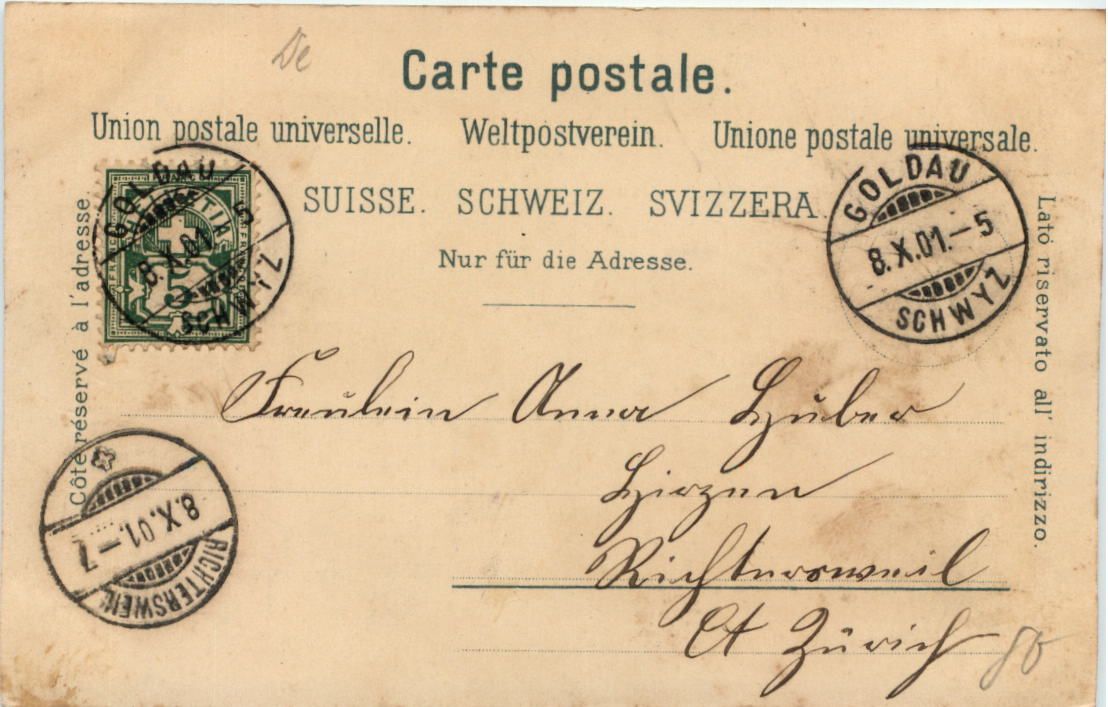 De
Carte postale.
Union postale universelle. Weltpostverein. Unione postale universale.
SUISSE. SCHWEIZ. SVIZZERA.
Nur für die Adresse.
Côté réservé à l'adresse.
Lato riservato all' indirizzo.
GOLDAU
8.X.01.-5
SCHWYZ
GOLDAU
8.X.01.-5
SCHWYZ
Fräulein Anna Huber
Hirzen
Richtersweil
Ct Zürich
8.X.01.-7
RICHTERSWEIL
80